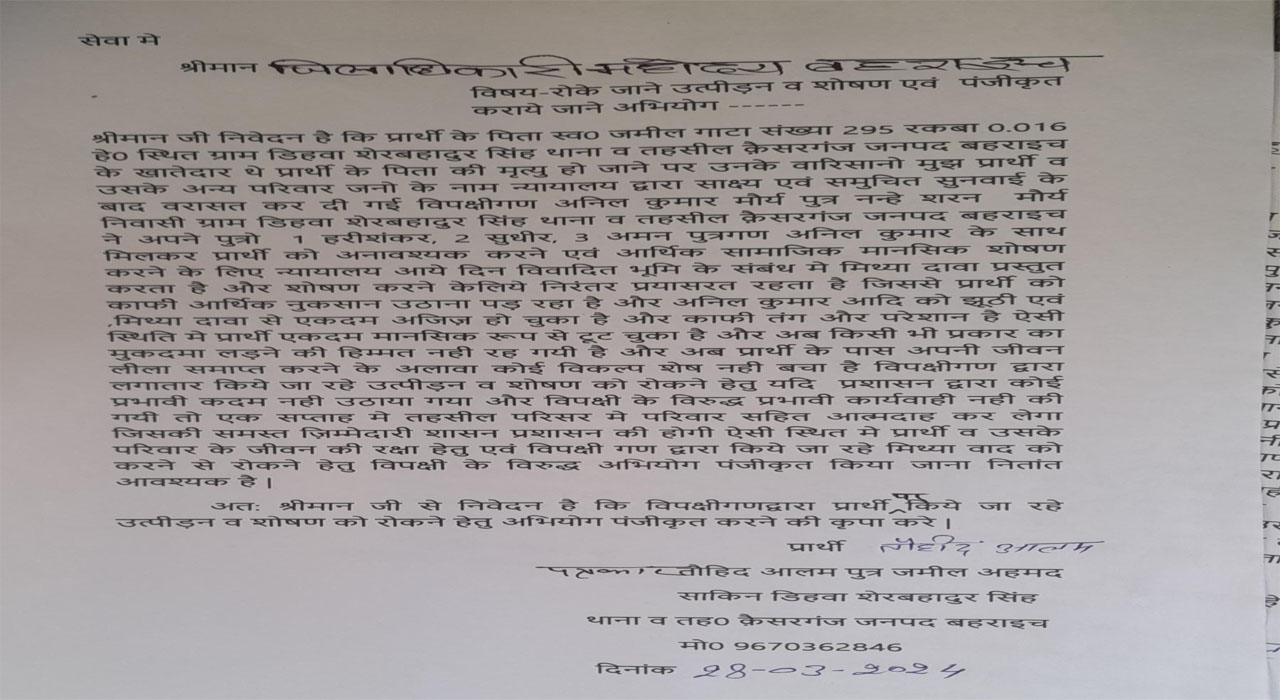 सेवा मे
श्रीमान जिलाधिकारी महोदय बहराइच
विषय-रोके जाने उत्पीड़न व शोषण एवं पंजीकृत
कराये जाने अभियोग ------
श्रीमान जी निवेदन है कि प्रार्थी के पिता स्व0 जमील गाटा संख्या 295 रकबा 0.016
हे0 स्थित ग्राम डिहवा शेरबहादुर सिंह थाना व तहसील क़ैसरगंज जनपद बहराइच
के खातेदार थे प्रार्थी के पिता की मृत्यु हो जाने पर उनके वारिसानो मुझ प्रार्थी व
उसके अन्य परिवार जनो के नाम न्यायालय द्वारा साक्ष्य एवं समुचित सुनवाई के
बाद वरासत कर दी गई विपक्षीगण अनिल कुमार मौर्य पुत्र नन्हे शरन मौर्य
निवासी ग्राम डिहवा शेरबहादुर सिंह थाना व तहसील क़ैसरगंज जनपद बहराइच
ने अपने पुत्रो 1 हरीशंकर, 2 सुधीर, 3 अमन पुत्रगण अनिल कुमार के साथ
मिलकर प्रार्थी को अनावश्यक करने एवं आर्थिक सामाजिक मानसिक शोषण
करने के लिए न्यायालय आये दिन विवादित भूमि के संबंध मे मिथ्या दावा प्रस्तुत
करता है और शोषण करने केलिये निरंतर प्रयासरत रहता है जिससे प्रार्थी को
काफी आर्थिक नुकसान उठाना पड़ रहा है और अनिल कुमार आदि को झूठी एवं
,मिथ्या दावा से एकदम अजिज़ हो चुका है और काफी तंग और परेशान है ऐसी
स्थिति मे प्रार्थी एकदम मानसिक रूप से टूट चुका है और अब किसी भी प्रकार का
मुकदमा लड़ने की हिम्मत नही रह गयी है और अब प्रार्थी के पास अपनी जीवन
लीला समाप्त करने के अलावा कोई विकल्प शेष नही बचा है विपक्षीगण द्वारा
लगातार किये जा रहे उत्पीड़न व शोषण को रोकने हेतु यदि प्रशासन द्वारा कोई
प्रभावी कदम नही उठाया गया और विपक्षी के विरुद्ध प्रभावी कार्यवाही नही की
गयी तो एक सप्ताह मे तहसील परिसर मे परिवार सहित आत्मदाह कर लेगा
जिसकी समस्त ज़िम्मेदारी शासन प्रशासन की होगी ऐसी स्थित मे प्रार्थी व उसके
परिवार के जीवन की रक्षा हेतु एवं विपक्षी गण द्वारा किये जा रहे मिथ्या वाद को
करने से रोकने हेतु विपक्षी के विरुद्ध अभियोग पंजीकृत किया जाना नितांत
आवश्यक है।
अतः श्रीमान जी से निवेदन है कि विपक्षीगणद्वारा प्रार्थी पर किये जा रहे
उत्पीड़न व शोषण को रोकने हेतु अभियोग पंजीकृत करने की कृपा करे।
प्रार्थी तौहीद आलम
पत्रकार तौहिद आलम पुत्र जमील अहमद
साकिन डिहवा शेरबहादुर सिंह
थाना व तह0 क़ैसरगंज जनपद बहराइच
मो0 9670362846
दिनांक 28-03-2024